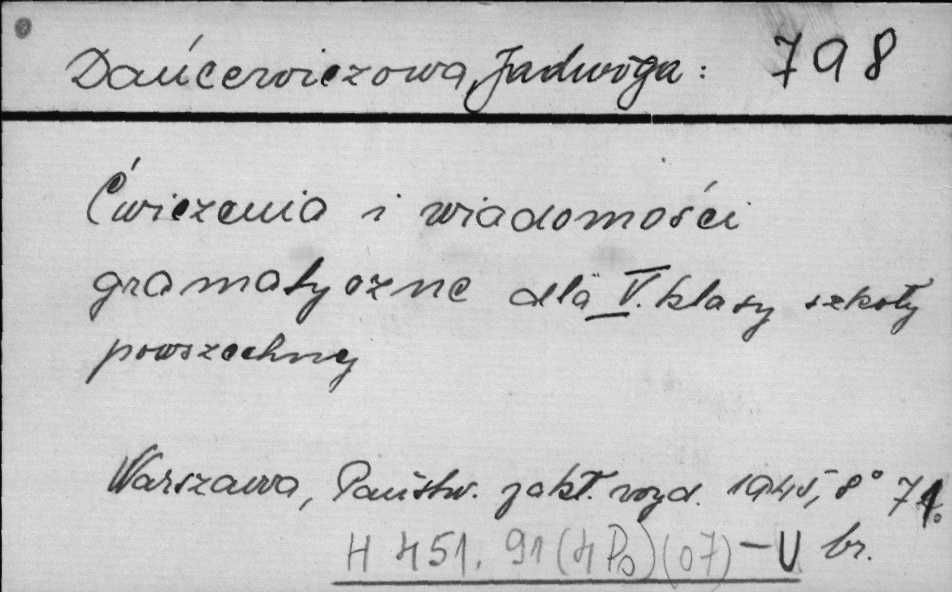 Dańcewiczowa, Jadwiga: 798
Ćwiczenia i wiadomości
gramatyczne dla V. klasy szkoły
powszechnej
Warszawa, Państw. zakł. wyd. 1945, 8° 71.
H 451. 91 (4 Po) (07) – V br.